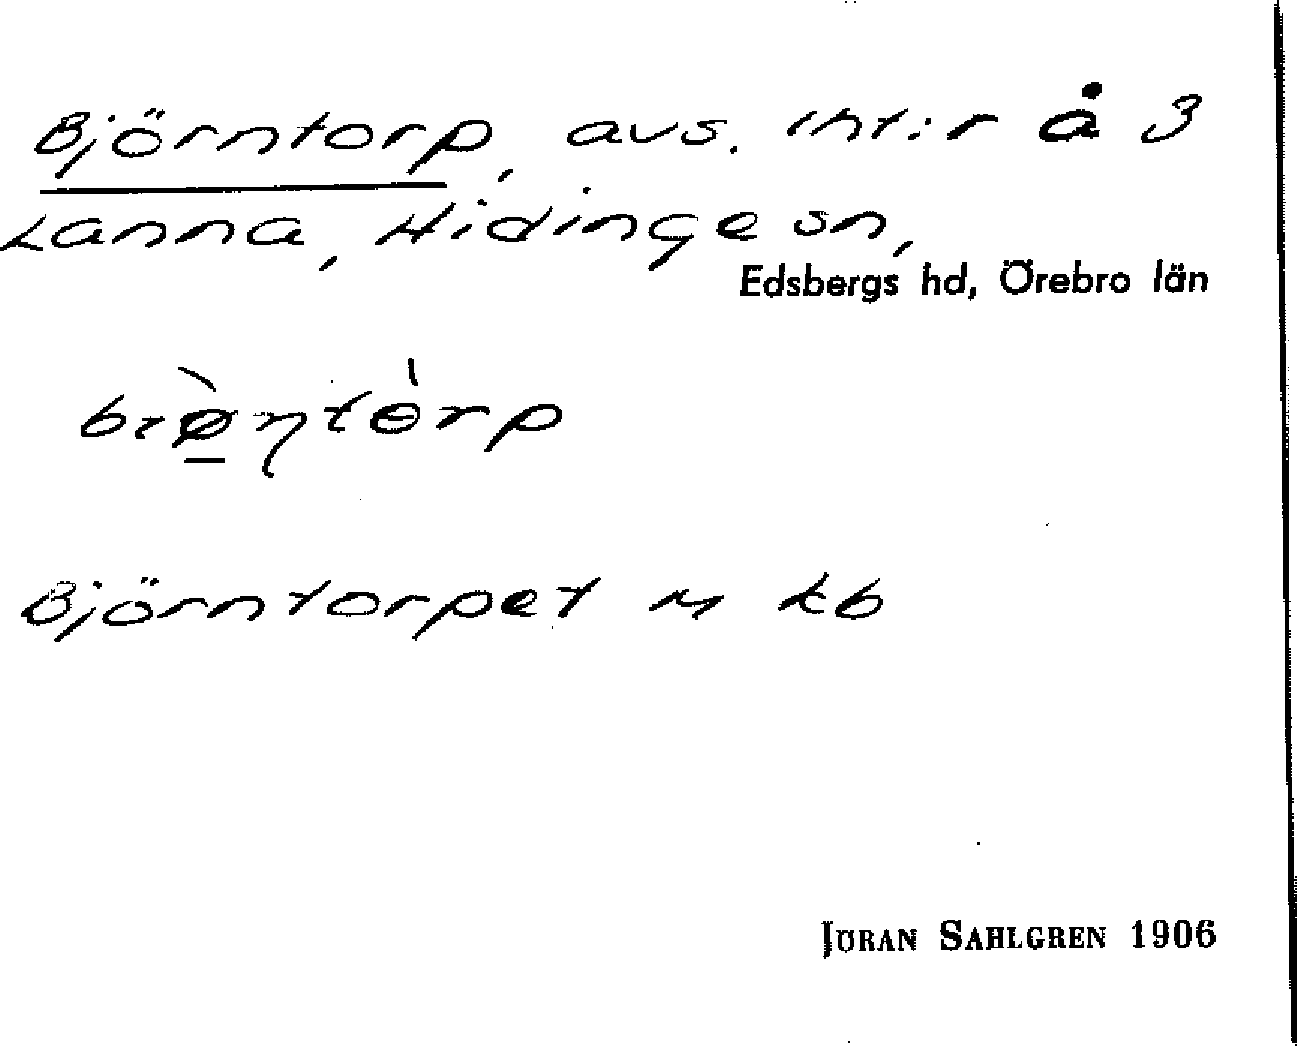 Björntorp, avs. int:r å 3
Lanna, Hidinge sn,
Edsbergs hd, Örebro län
Björntorpet
Jöran Sahlgren 1906